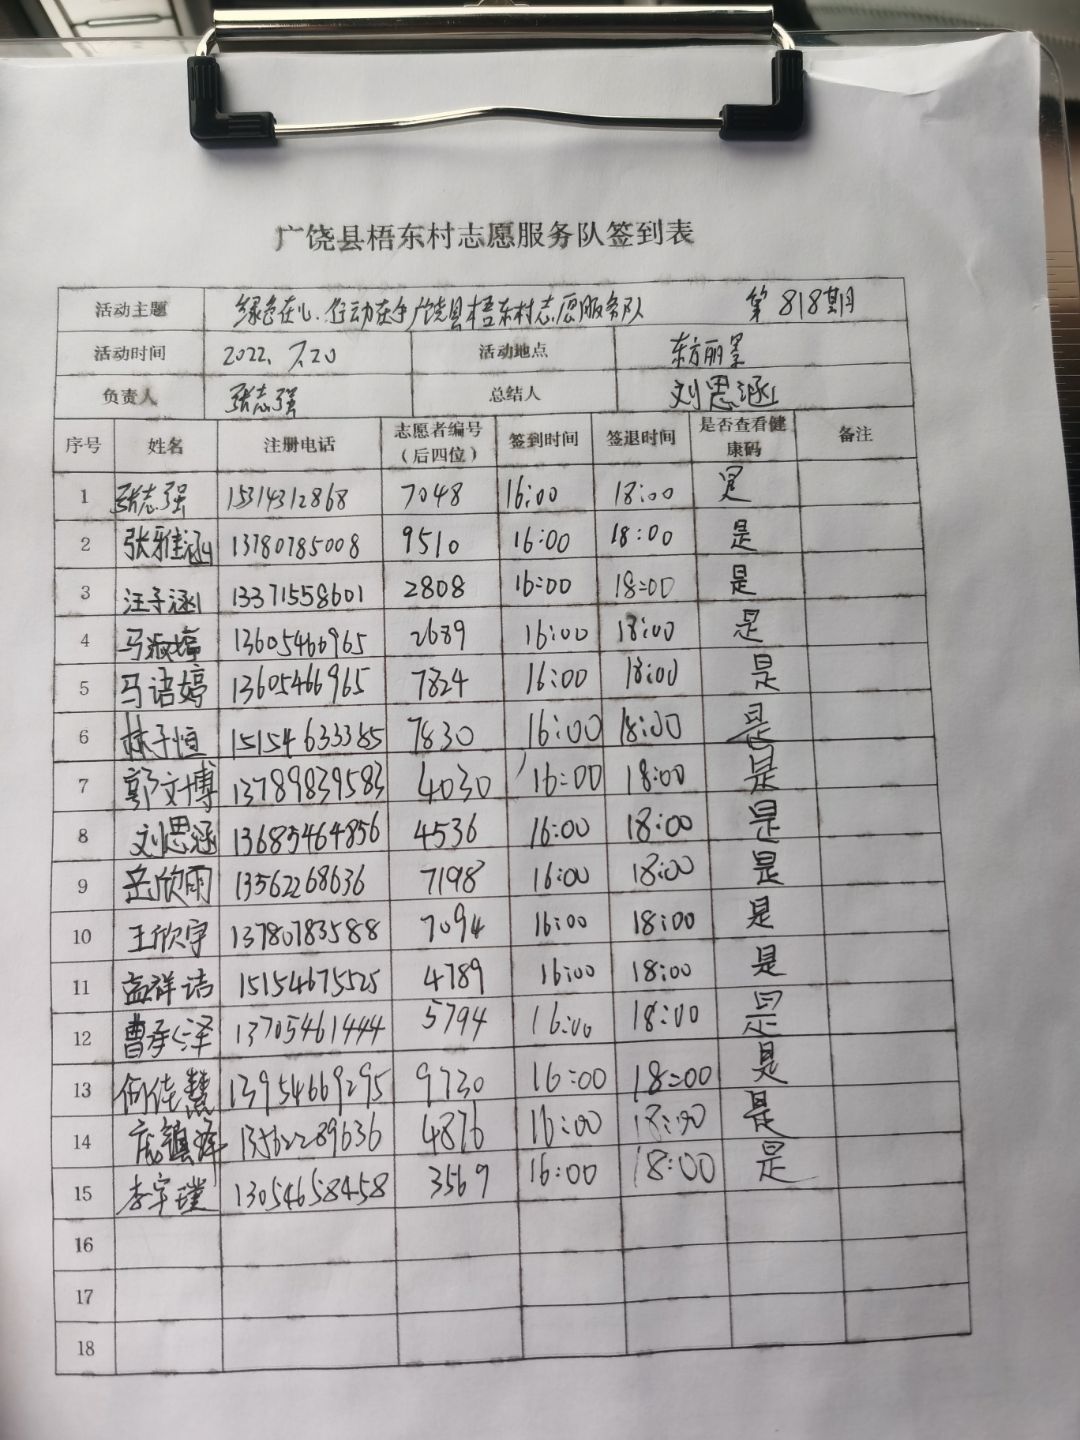 广饶县梧东村志愿服务队签到表
活动主题 绿色在心、行动在手广饶县梧东村志愿服务队 第818期
活动时间 2022.7.20 活动地点 东方丽景
负责人 张志强 总结人 刘思涵
序号 姓名 注册电话 志愿者编号（后四位） 签到时间 签退时间 是否查看健康码 备注
1 张志强 15314312868 7048 16:00 18:00 是
2 张雅涵 13780785008 9510 16:00 18:00 是
3 汪子涵 13371558601 2808 16:00 18:00 是
4 马淑婷 13605466965 2689 16:00 18:00 是
5 马语婷 13605466965 7824 16:00 18:00 是
6 林子恒 15154633385 7830 16:00 18:00 是
7 郭文博 13789839583 4030 16:00 18:00 是
8 刘思涵 13685464856 4536 16:00 18:00 是
9 岳欣雨 13562268636 7198 16:00 18:00 是
10 王欣宇 13780783588 7094 16:00 18:00 是
11 孟祥洁 15154675525 4789 16:00 18:00 是
12 曹承泽 13705461444 5794 16:00 18:00 是
13 何佳慧 13954669295 9730 16:00 18:00 是
14 13562289636 4876 16:00 18:00 是
15 李宇璞 13054658458 3569 16:00 18:00 是
16
17
18